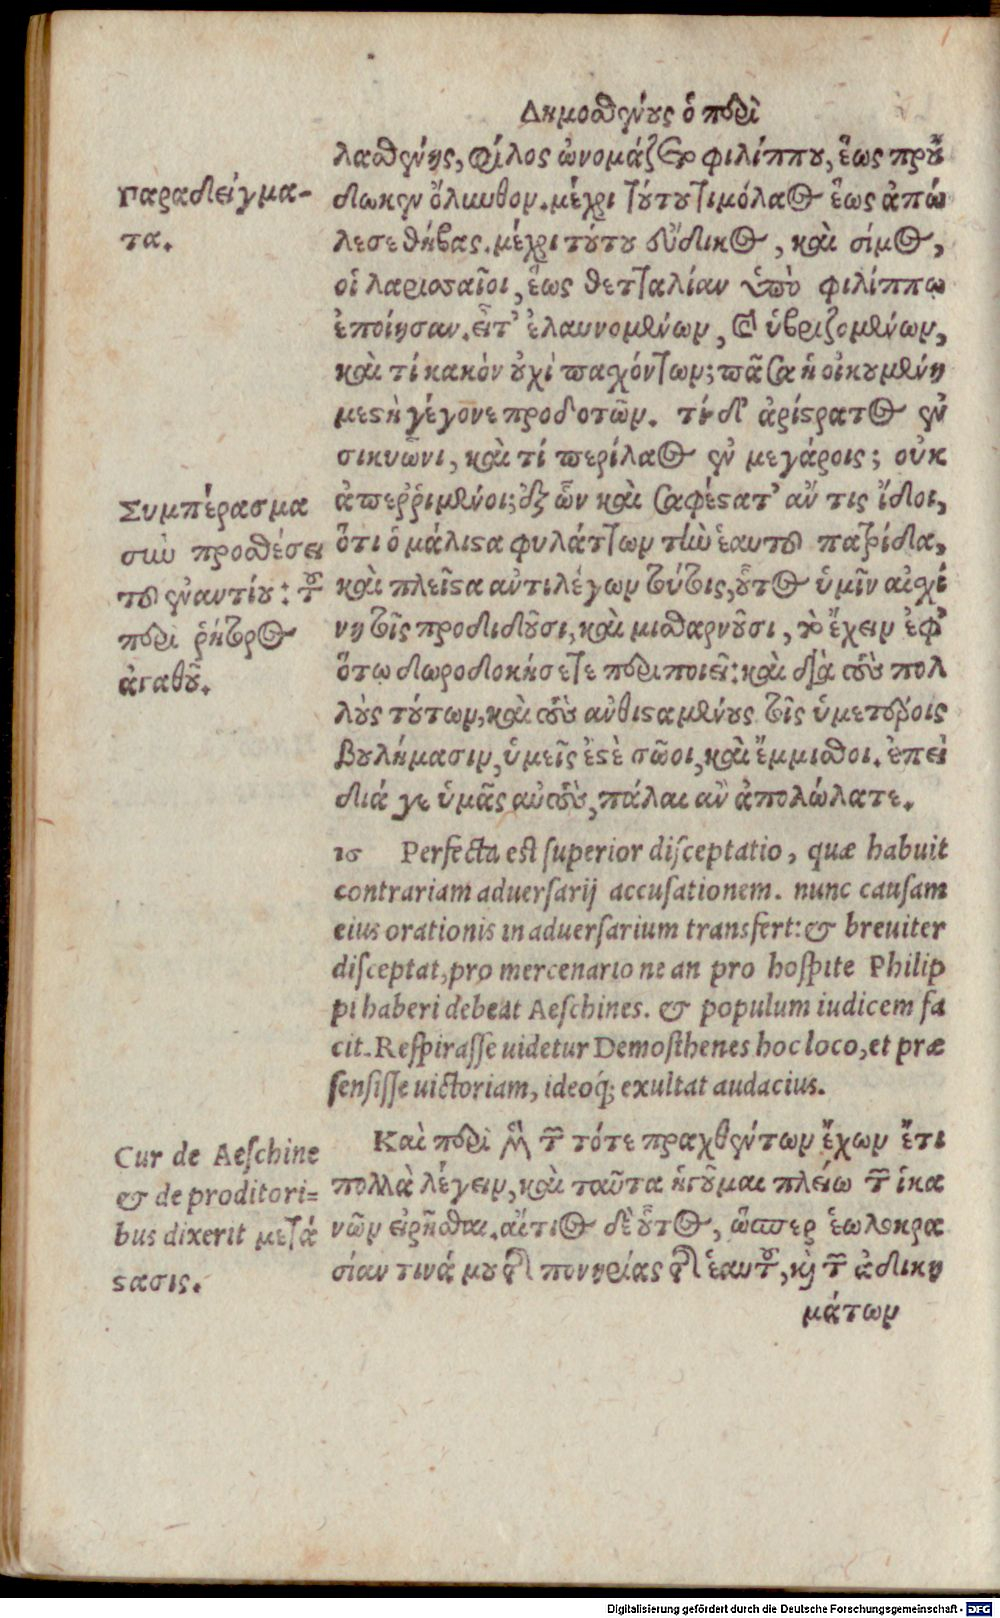 Δημοσθένους ὁ περὶ
Παραδείγμα-
τα.
λασθένης, φίλος ὠνομάζετο φιλίππου, ἕως προὔ
δωκεν ὄλυνθον. μέχρι τούτου τιμόλαος ἕως ἀπώ
λεσε θήβας. μέχρι τούτου εὔδικος, καὶ σίμος,
οἱ λαρισσαῖοι, ἕως θετταλίαν ὑπὸ φιλίππω
ἐποίησαν. εἶτ' ἐλαυνομένων, καὶ ὑβριζομένων,
καὶ τί κακὸν οὐχὶ πασχόντων; πᾶσα ἡ οἰκουμένη
μεστὴ γέγονε προδοτῶν. τί δ' ἀρίστρατος ἐν
σικυῶνι, καὶ τί περίλαος ἐν μεγάροις; οὐκ
ἀπεῤῥιμένοι; ἐξ ὧν καὶ σαφέστατ' ἄν τις ἴδοι,
ὅτι ὁ μάλιστα φυλάττων τὴν ἑαυτοῦ πατρίδα,
καὶ πλεῖστα ἀντιλέγων τούτοις, οὗτος ὑμῖν αἰσχί
νη τοῖς προδιδοῦσι, καὶ μισθαρνοῦσι, τὸ ἔχειν ἐφ'
ὅτω δωροδοκήσετε περιποιεῖ: καὶ διὰ τοὺς πολ
λοὺς τούτων, καὶ τοὺς ἀνθισταμένους τοῖς ὑμετέροις
βουλήμασιν, ὑμεῖς ἐστὲ σῶοι, καὶ ἔμμισθοι. ἐπεὶ
διά γε ὑμᾶς αὐτοὺς, πάλαι ἂν ἀπολώλατε.
Συμπέρασμα
σὺν προσθέσει
τοῦ ἐναντίου: τοῦ
περὶ ῥήτορος
ἀγαθοῦ.
16 Perfecta est superior disceptatio, quæ habuit
contrariam aduersarij accusationem. nunc causam
eius orationis in aduersarium transfert: & breuiter
disceptat, pro mercenario ne an pro hospite Philip
pi haberi debeat Aeschines. & populum iudicem fa
cit. Respirasse uidetur Demosthenes hoc loco, et præ
sensisse uictoriam, ideoq; exultat audacius.
Cur de Aeschine
& de proditori=
bus dixerit μετά
στασις.
Καὶ περὶ μὲν τῶν τότε πραχθέντων ἔχων ἔτι
πολλὰ λέγειν, καὶ ταῦτα ἡγοῦμαι πλείω τῶν ἱκα
νῶν εἰρῆσθαι. αἴτιος δὲ οὗτος, ὥσπερ ἑωλοκρα
σίαν τινά μου τῆς πονηρίας τῆς ἑαυτοῦ, καὶ τῶν ἀδικη
μάτων
Digitalisierung gefördert durch die Deutsche Forschungsgemeinschaft - DFG